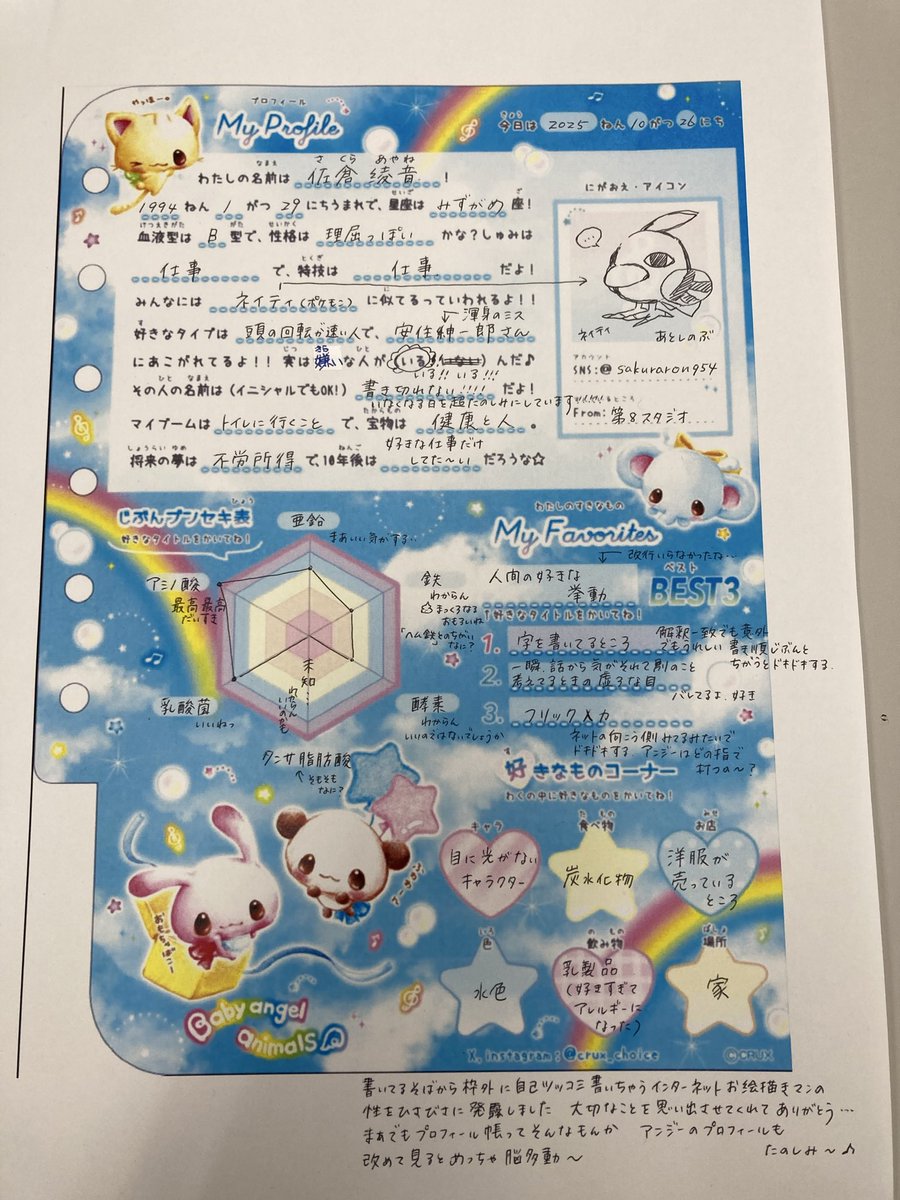 やっほー。
プロフィール
My Profile
きょう
今日は 2025 ねん 10 がつ 26 にち
なまえ さくら あやね
わたしの名前は 佐倉綾音 !
せいざ ざ
1994 ねん 1 がつ 29 にちうまれで、星座は みずがめ 座!
けつえきがた がた せいかく
血液型は B 型で、性格は 理屈っぽい かな?しゅみは
とくぎ
仕事 で、特技は 仕事 だよ!
に
みんなには ネイティ(ポケモン) に似てるっていわれるよ!!
↙渾身のミス
す
好きなタイプは 頭の回転が速い人で、安住紳一郎さん
じつ きら ひと
にあこがれてるよ!! 実は嫌いな人が(いる)んだ♪
いる!! いる!!!
ひと なまえ
その人の名前は(イニシャルでもOK!) 書き切れない!!!! だよ!
いなくなる日を超たのしみにしています
たからもの
マイブームは トイレに行くこと で、宝物は 健康と人 。
しょうらい ゆめ ねんご
好きな仕事だけ
将来の夢は 不労所得 で、10年後は してた〜い だろうな☆
にがおえ・アイコン
ネイティ
あとしのぶ
アカウント
SNS:@ sakuraron954
From: 第8スタジオ
ひょう
じぶんブンセキ表
好きなタイトルをかいてね!
亜鉛
まあいい気がする…
アミノ酸
最高最高
だいすき
鉄
わからん
まっくろなる
おもろいね
「ヘム鉄」とのちがい
なに?
乳酸菌
いいねっ
未知…
わからん
いいのかも
酵素
わからん
いいのではないでしょうか
タンサ脂肪酸
↑そもそも
なに?
わたしのすきなもの
My Favorites
← 改行いらなかったね…
人間の好きな
挙動
ベスト
BEST3
好きなタイトルをかいてね!
1. 字を書いてるところ
解釈一致でも意外
でもうれしい 書き順じぶんと
ちがうとドキドキする
2. 一瞬、話から気がそれて別のこと
考えてるときの虚ろな目
バレてるよ、好き
3. フリック入力
ネットの向こう側みてるみたいで
ドキドキする アンジーはどの指で
打つの〜?
す
好きなものコーナー
わくの中に好きなものをかいてね!
キャラ
目に光がない
キャラクター
た もの
食べ物
炭水化物
みせ
お店
洋服が
売っている
ところ
いろ
色
水色
の もの
飲み物
乳製品
(好きすぎて
アレルギーに
なった)
ばしょ
場所
家
おもちゃばこー
Baby angel
animals
X, instagram : @crux_choice
©CRUX
書いてるそばから枠外に自己ツッコミ書いちゃうインターネットお絵描きマンの
性をひさびさに発露しました 大切なことを思い出させてくれてありがとう…
まぁでもプロフィール帳ってそんなもんか アンジーのプロフィールも
たのしみ〜♪
改めて見るとめっちゃ脳多動〜